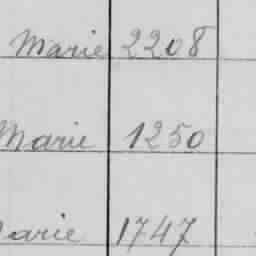 Marie 2208
Marie 1250
Marie 1747